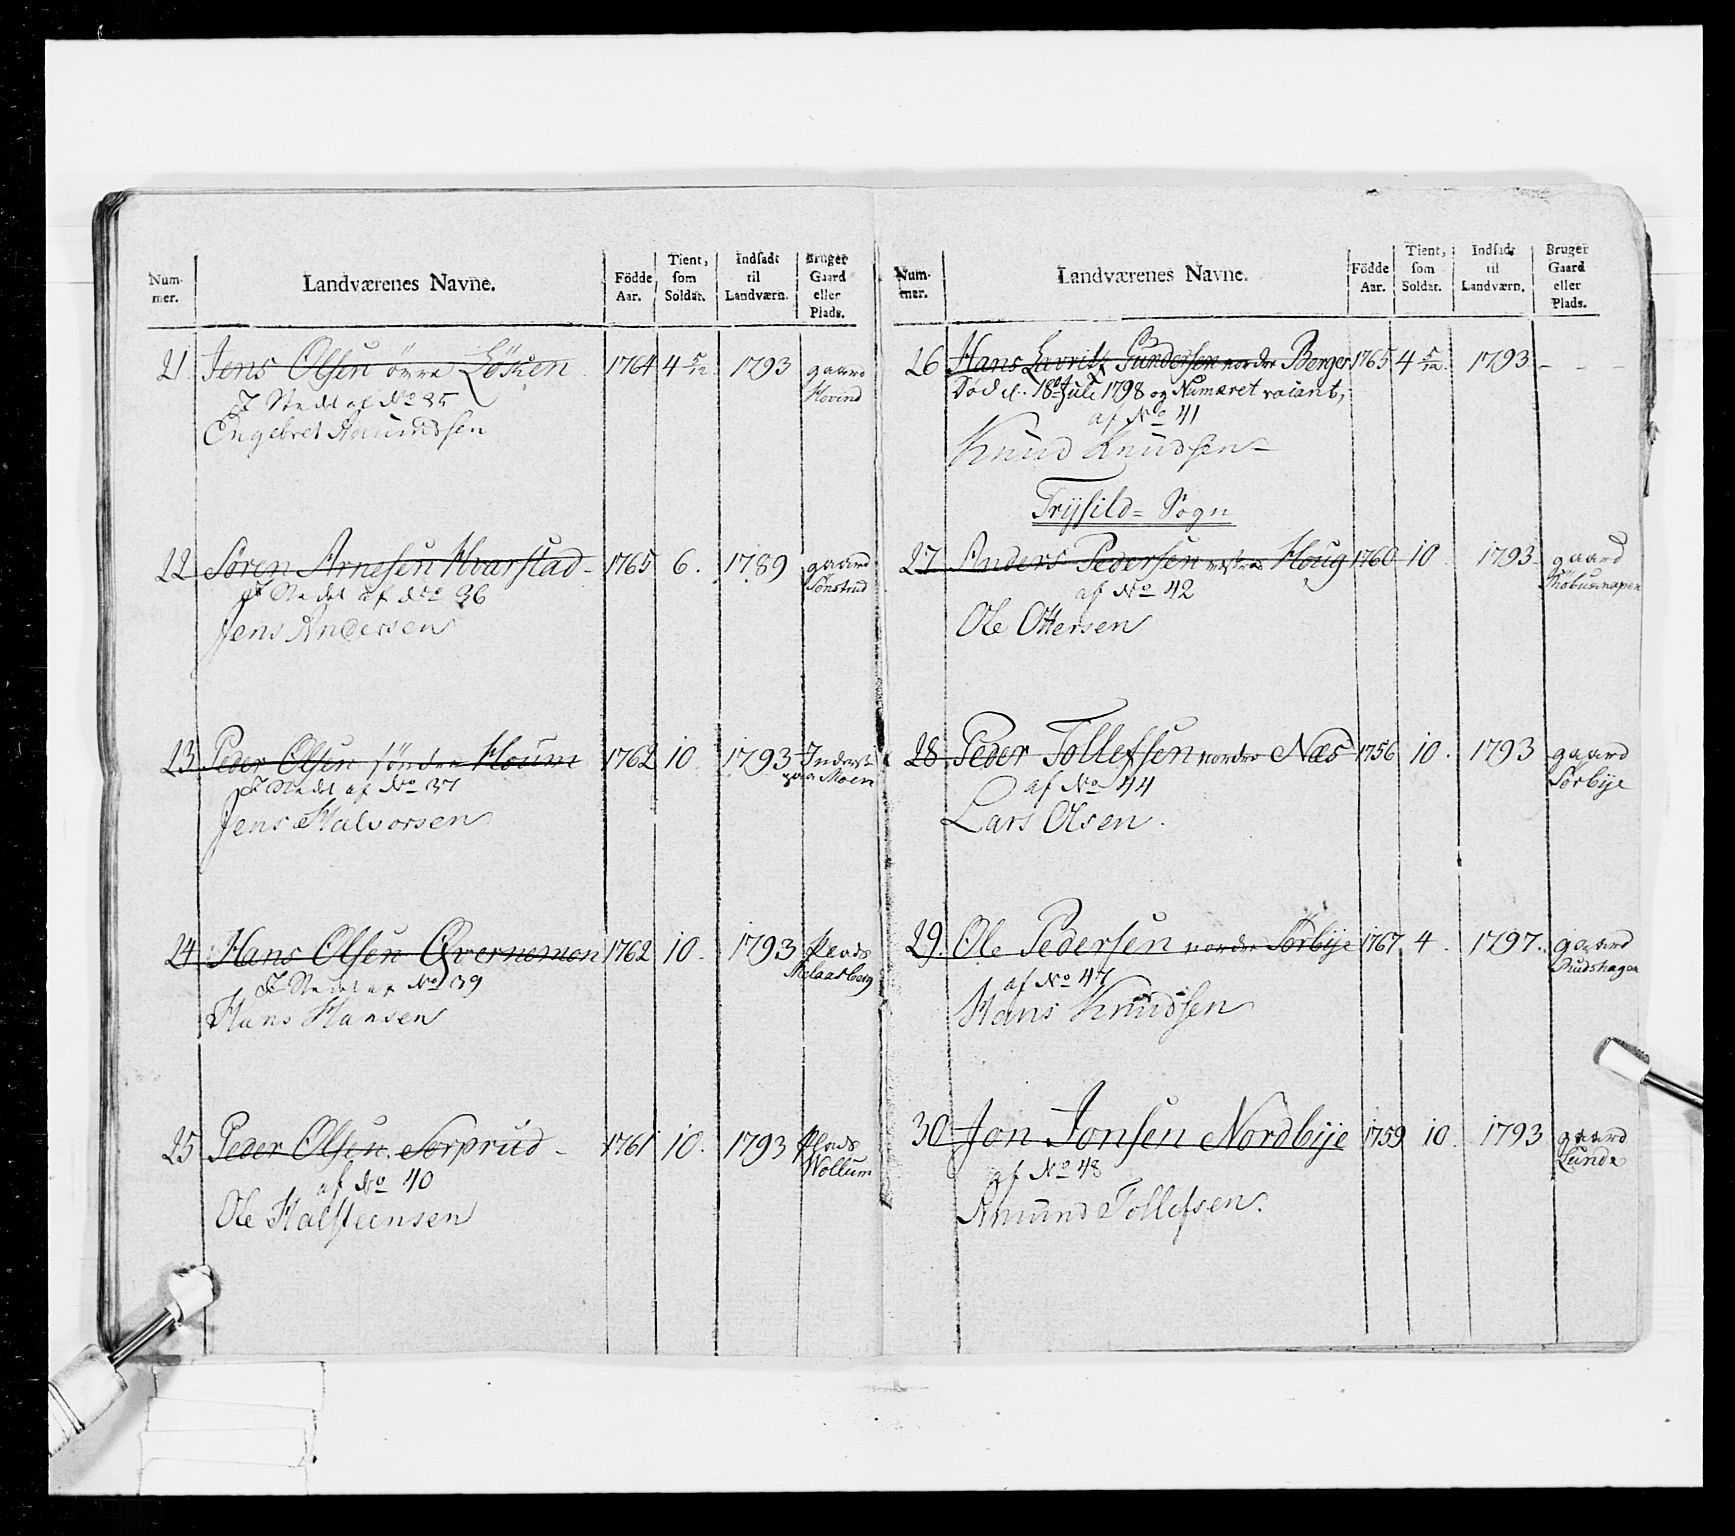 Num-
mer.
Landværenes Navne.
Födde
Aar.
Tient,
som
Soldat.
Indsadt
til
Landværn.
Bruger
Gaard
eller
Plads.
21 Jens Olsen övre Lösken 1764 4 5/12 1793 gaard
Hovind
I Stedet af No 35
Engebret Amundsen
22 Sören Arnesen Kvarstad 1765 6. 1789 gaard
Sönstrud
I Stedet af No 36
Jens Andersen
23 Peder Olsen sönden Houm 1762 10 1793 Inderst
paa Moen
I Stedet af No 37
Jens Halvorsen
24 Hans Olsen Qvernemoen 1762 10. 1793 Plads
I Stedet af No 39
Hans Hansen
25 Peder Olsen Sorprud 1761 10. 1793 Plads
Wollum
af No 40
Ole Halsteensen
Num-
mer.
Landværenes Navne.
Födde
Aar.
Tient,
som
Soldat.
Indsadt
til
Landværn.
Bruger
Gaard
eller
Plads.
26 Hans Lavritz Gundersen nordre Berger 1765 4 5/12. 1793 - - -
Död d. 18de Juli 1798 og Numeret vacant,
af No 41
Knud Knudsen
Trysild= Sogn
27 Anders Pedersen vestre Houg 1760 10 1793 gaard
af No 42
Ole Ottersen
28 Peder Tollefsen nordre Næs 1756 10. 1793 gaard
Sörbije
af No 44
Lars Olsen.
29. Ole Pedersen nordre Sörbije 1767 4. 1797. gaard
af No 47
Hans Knudsen
30 Jon Jonsen Nordbije 1759 10. 1793 gaard
Lunde
af No 48
Amund Tollefsen.